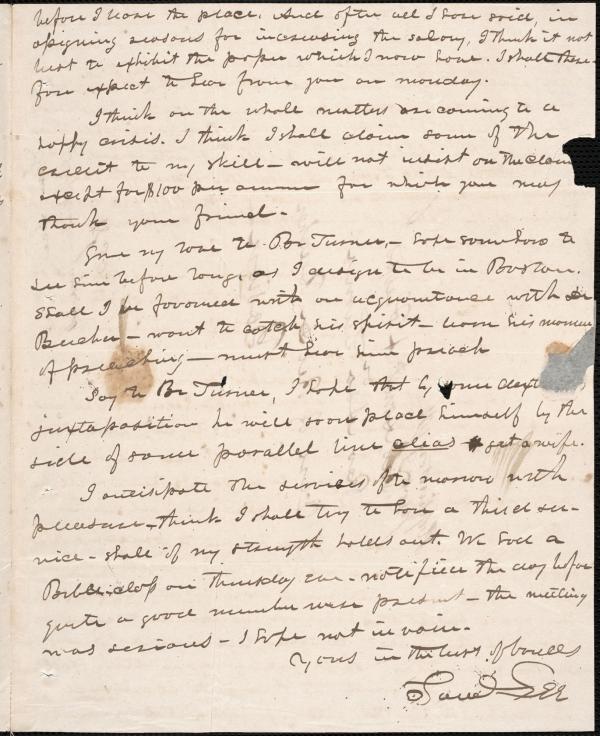 before I leave the place. And after all I have said, in
assigning reasons for increasing the salary, I think it not
best to exhibit the paper which I now have. I shall there-
fore expect to hear from you on monday.
I think on the whole matters are coming to a
happy crisis. I think I shall claim some of the
credit to my skill – will not insist on the claim
except for $100 per annum for which you may
thank your friend.
Give my love to Br Turner, – hope somehow to
see him before long, as I design to be in Boston.
Shall I be favoured with an acquaintance with Dr
Beecher – want to catch his spirit – learn his manner
of preaching – must hear him preach
Say to Br Turner, I hope that by some dext
juxtaposition he will soon place himself by the
side of some parallel line alias get a wife.
I anticipate the services of the morrow with
pleasure – think I shall try to have a third ser-
vice – shall if my strength holds out. We had a
Bible class on thursday eve – notified the day before
quite a good number were present – the meeting
was serious – I hope not in vain.
Yours in the best of bonds
Saml Lee